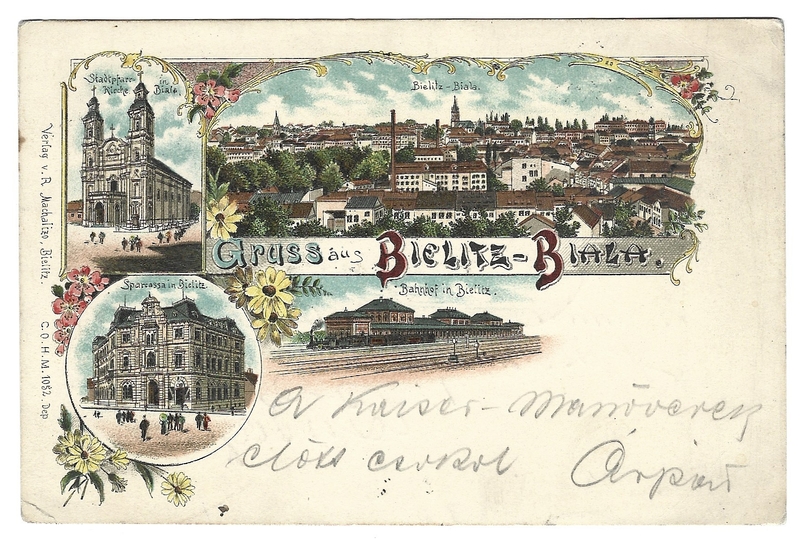 Stadtpfarr-
Kirche in Biala.
Bielitz-Biala.
Gruss aus Bielitz-Biala.
Sparcassa in Bielitz.
Bahnhof in Bielitz.
Verlag v. R. Machalizo, Bielitz. C. O. H. M. 1082. Dep
A Kaiser-Manöverek
előtt csókol Árpád